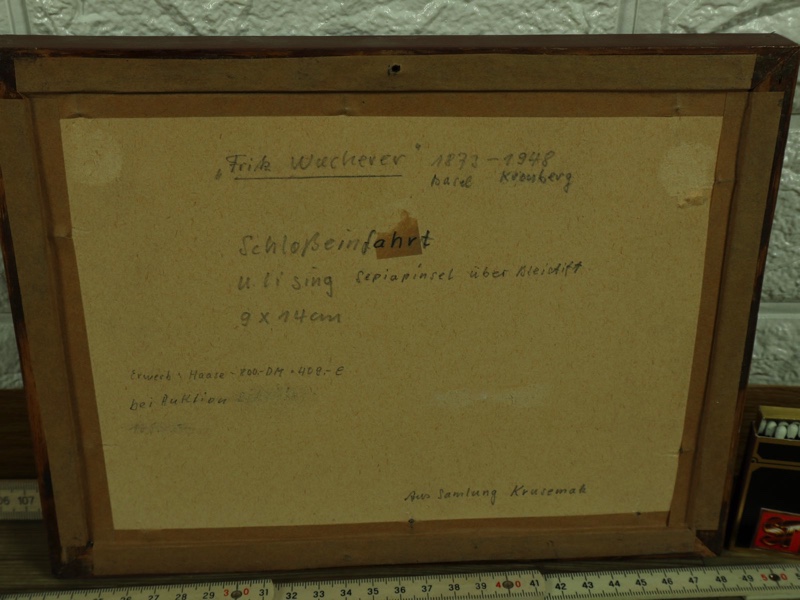 „Fritz Wucherer" 1873-1948
Basel Kronberg
Schloßeinfahrt
u. li sing Sepiapinsel über Bleistift
9 x 14 cm
Erwerb: Hanse - 800.-DM = 409.- €
bei Auktion
Aus Samlung Krusemak
106 107
29 30 31 32 33 34 35 36 37 38 39 40 41 42 43 44 45 46 47 48 49 50